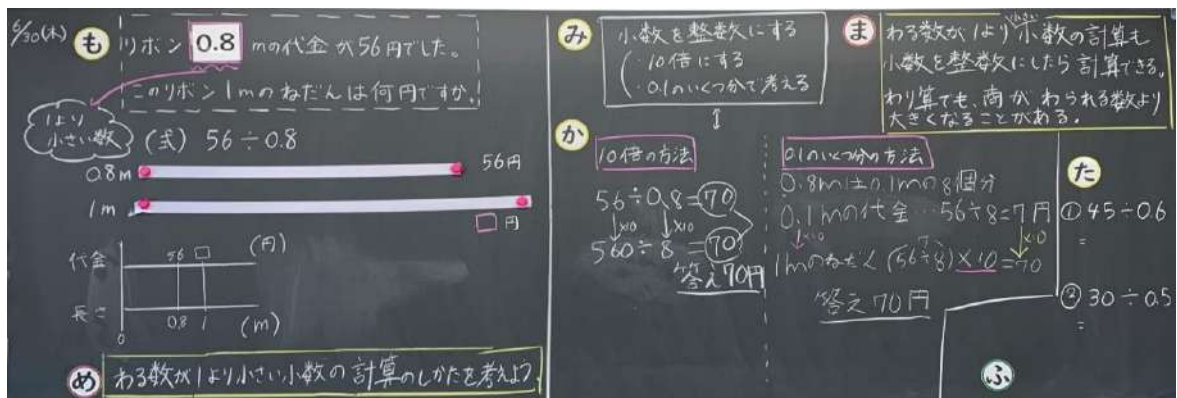 6/30(木)
も
リボン 0.8 mの代金が56円でした。
このリボン1mのねだんは何円ですか。
1より
小さい数
(式) 56÷0.8
0.8m 56円
1m
□円
代金 56 □ (円)
長さ 0 0.8 1 (m)
め
わる数が1より小さい小数の計算のしかたを考えよう
み
小数を整数にする
・10倍にする
・0.1のいくつ分で考える
か
10倍の方法
56÷0.8=70
↓×10 ↓×10
560÷8=70
答え70円
0.1のいくつ分の方法
0.8mは0.1mの8個分
0.1mの代金…56÷8=7円
↓×10 ↓×10
1mのねだん (56÷8)×10=70
7
答え 70円
ま
わる数が1より小数の計算も
小数を整数にしたら計算できる。
わり算でも、商がわられる数より
大きくなることがある。
た
① 45÷0.6
=
② 30÷0.5
=
ふ